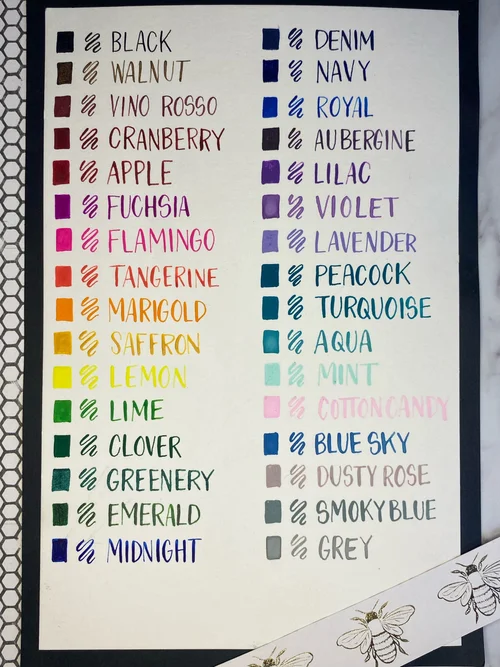 BLACK
WALNUT
VINO ROSSO
CRANBERRY
APPLE
FUCHSIA
FLAMINGO
TANGERINE
MARIGOLD
SAFFRON
LEMON
LIME
CLOVER
GREENERY
EMERALD
MIDNIGHT
DENIM
NAVY
ROYAL
AUBERGINE
LILAC
VIOLET
LAVENDER
PEACOCK
TURQUOISE
AQUA
MINT
COTTON CANDY
BLUE SKY
DUSTY ROSE
SMOKY BLUE
GREY